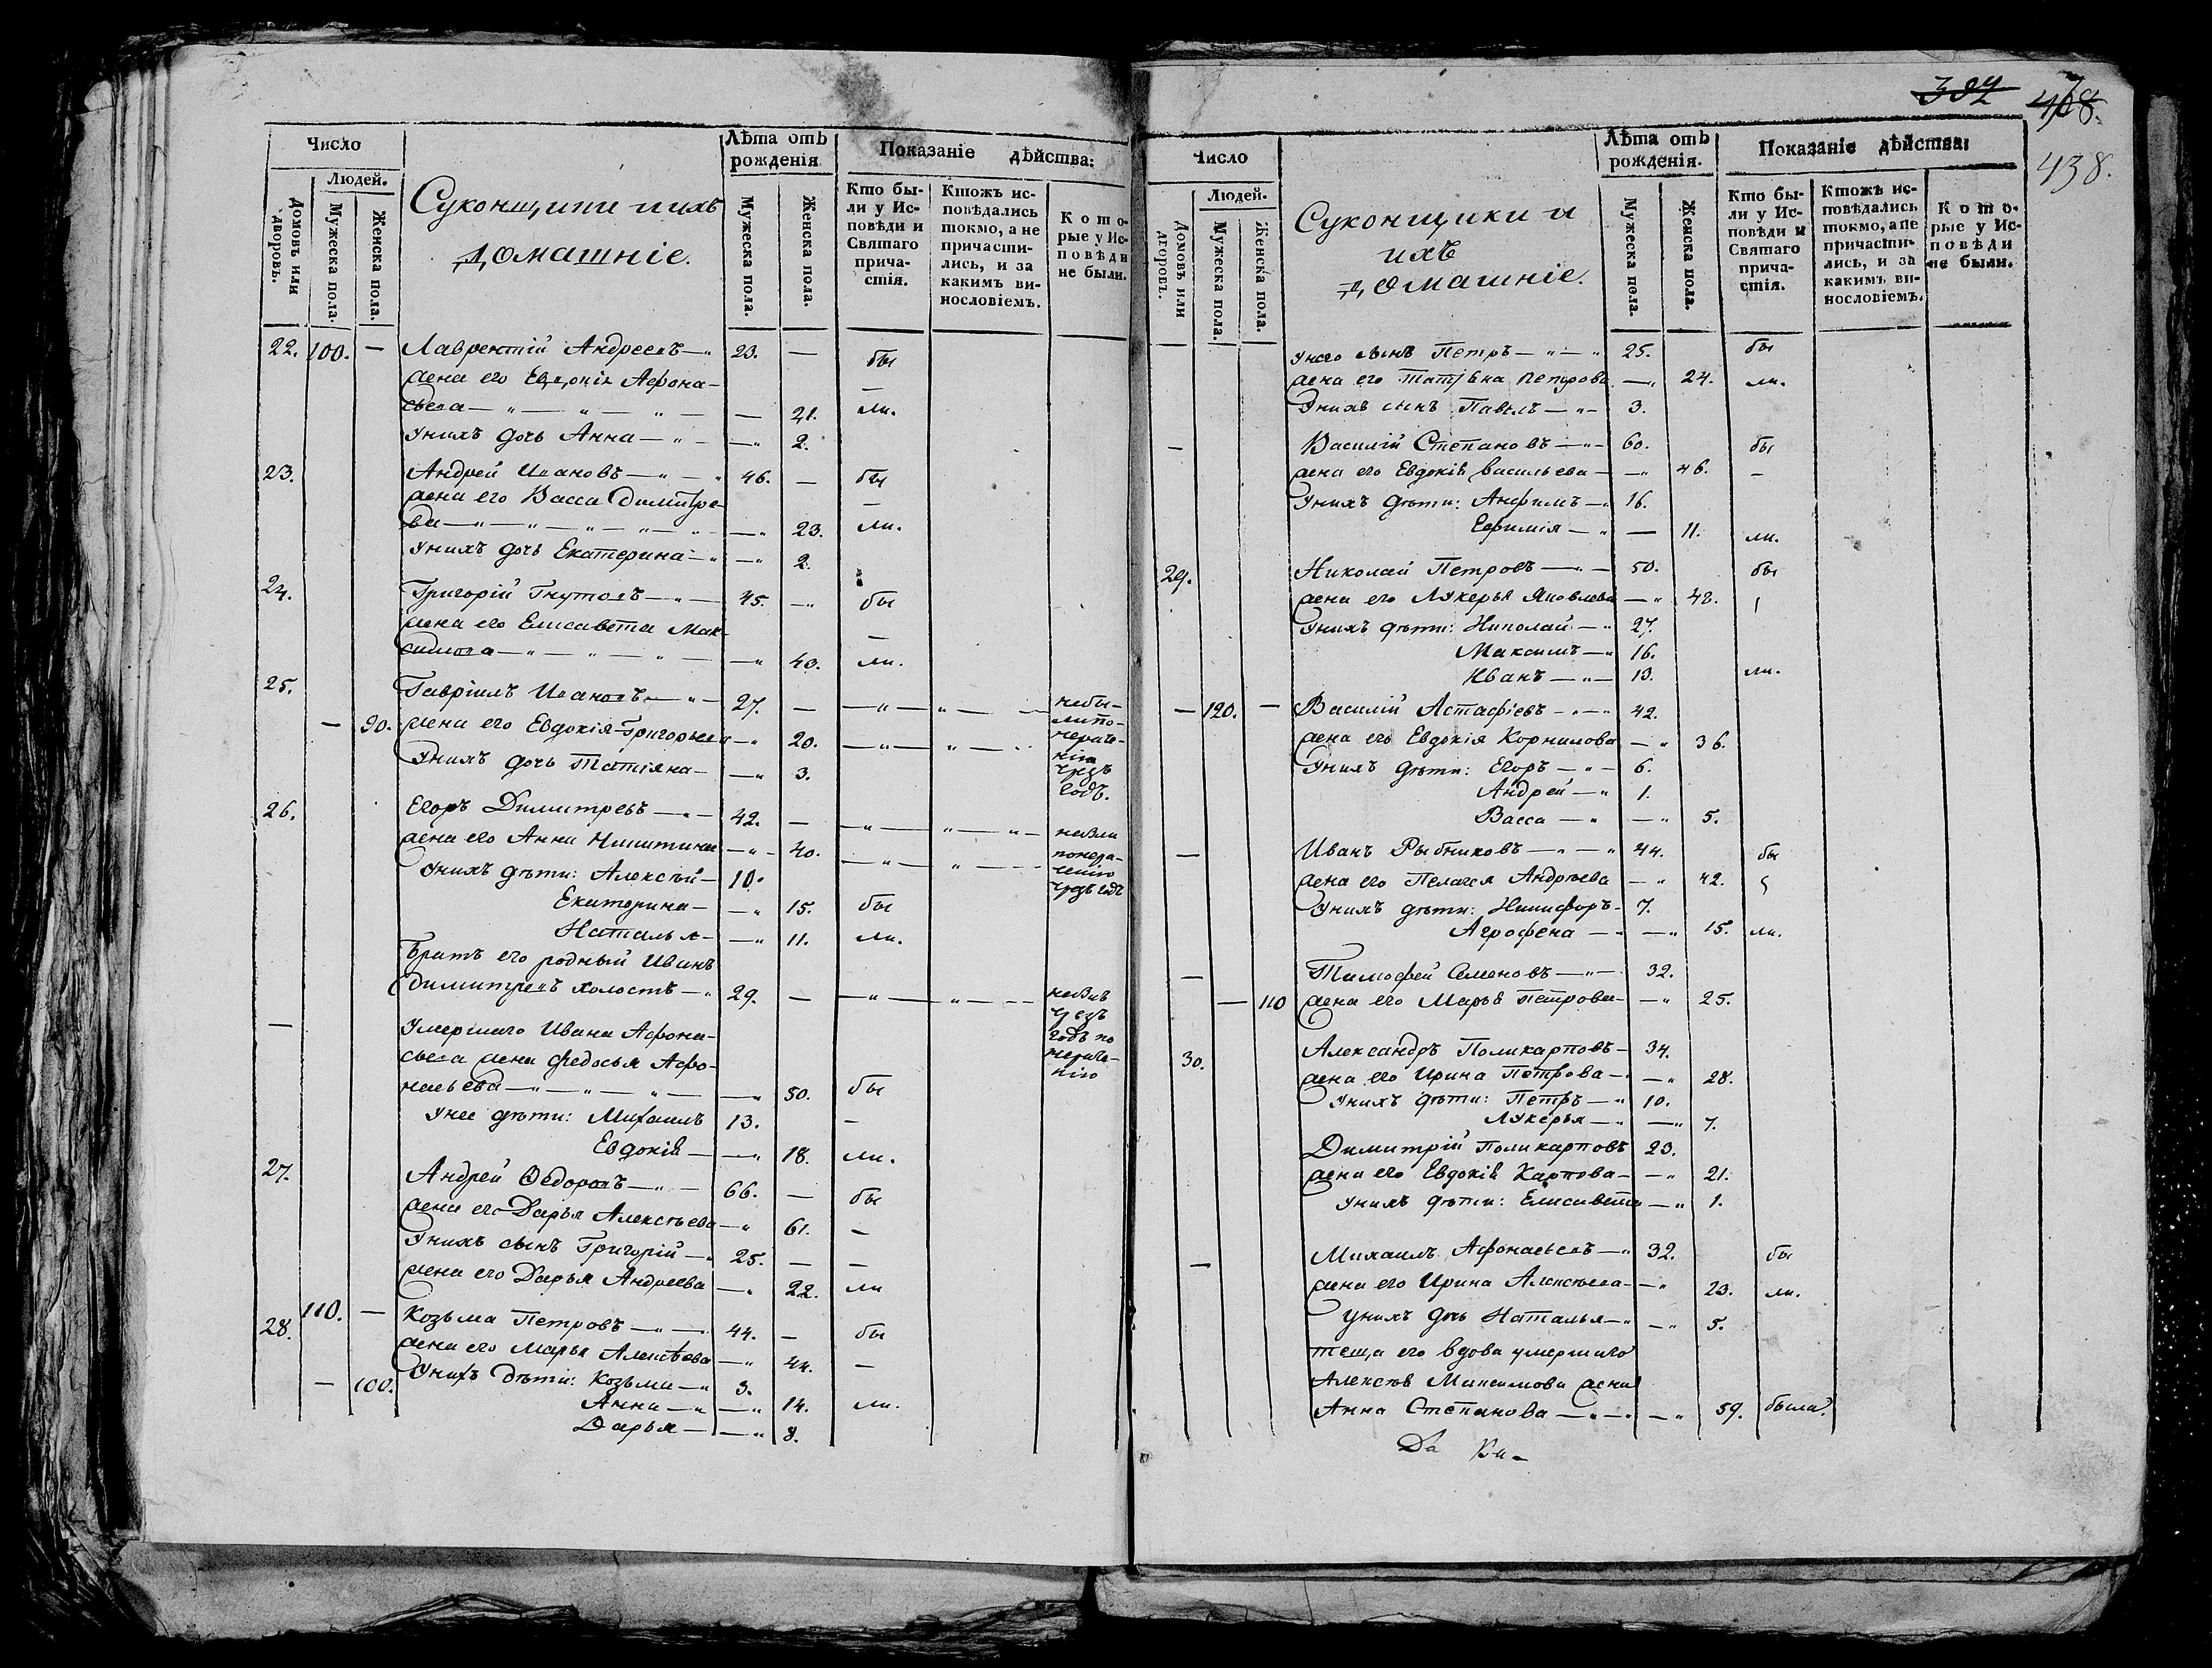 Число
Людей.
Домовъ или дворовъ.
Мужеска пола.
Женска пола.
Суконщики и ихъ
домашніе.
Лѣта отъ рожденія
Мужеска пола.
Женска пола.
Показаніе дѣйства:
Кто были у Исповѣди и Святаго причастія.
Ктожъ исповѣдались токмо, а не причастились, и за какимъ винословіемъ.
Которые у Исповѣди не были.
22. 100. — Лаврентій Андреевъ — 23. — бы
жена его Евдокія Афона-
сьева — — 21. ли.
У нихъ дочь Анна — — 2.
23. Андрей Ивановъ — 46. — бы
жена его Васса Димитре-
ва — — 23. ли.
У нихъ дочь Екатерина — — 2.
24. Григорій Гнутовъ — 45. — бы
жена его Елисавета Мак-
симова — — 40. ли.
25. Гавріилъ Ивановъ — 27. — небы-
— 90. жена его Евдокія Григорьева — 20. ли по-
У нихъ дочь Татіяна — — 3.
чрезъ
годъ.
26. Егоръ Димитревъ — 42. —
жена его Анна Никитина — 40.
У нихъ дѣти: Алексѣй — 10.
чрезъ годъ
Екатерина — — 15. бы
Наталья — — 11. ли.
Братъ его родный Иванъ
Димитревъ холостъ — 29. —
чрезъ
годъ по
— Умершаго Ивана Афона-
сьева жена Федосья Афо-
насьева — — 50. бы
У нее дѣти: Михаилъ 13. —
Евдокія — — 18. ли.
27. Андрей Федоровъ — 66. — бы
жена его Дарья Алексѣева — 61. —
У нихъ сынъ Григорій — 25. — —
жена его Дарья Андреева — 22. ли
28. 110. — Козьма Петровъ — 44. — бы
жена его Марья Алексѣева — 44. —
— 100. У нихъ дѣти: Козьма — 3.
Анна — — 14. ли.
Дарья — — 8.
382 438.
Число
Людей.
Домовъ или дворовъ.
Мужеска пола.
Женска пола.
Суконщики и
ихъ
домашніе.
Лѣта отъ рожденія.
Мужеска пола.
Женска пола.
Показаніе дѣйства:
Кто были у Исповѣди и Святаго причастія.
Ктожъ исповѣдались токмо, а не причастились, и за какимъ винословіемъ.
Которые у Исповѣди не были.
У него сынъ Петръ — 25. бы
жена его Татіяна Петрова — 24. ли.
У нихъ сынъ Павелъ — 3.
— Василій Степановъ — 60. бы
жена его Евдокія Васильева — 46. —
У нихъ дѣти: Анфимъ — 16.
Ефимія — — 11. ли.
29. Николай Петровъ — 50. бы
жена его Лукерья Яковлева — 42.
У нихъ дѣти: Николай — 27.
Максимъ — 16.
Иванъ — 13. ли.
— 120. — Василій Астафіевъ — 42.
жена его Евдокія Корнилова — 36.
У нихъ дѣти: Егоръ — 6.
Андрей — 1.
Васса — — 5.
— Иванъ Рыбниковъ — 44. бы
жена его Пелагея Андреева — 42.
У нихъ дѣти: Никифоръ — 7.
Агрофена — — 15. ли.
— Тимофей Семеновъ — 32.
— 110 жена его Марья Петрова — — 25.
30. Александръ Поликарповъ — 34.
жена его Ирина Петрова — — 28.
У нихъ дѣти: Петръ — 10.
Лукерья — — 7.
Димитрій Поликарповъ 23.
жена его Евдокія Карпова — — 21.
У нихъ дѣти: Елисавета — 1.
— Михаилъ Афонасьевъ — 32. бы
жена его Ирина Алексѣева — — 23. ли.
У нихъ дочь Наталья — — 5.
теща его вдова умершаго
Алексѣя Максимова жена
Анна Степанова — — 59. была.